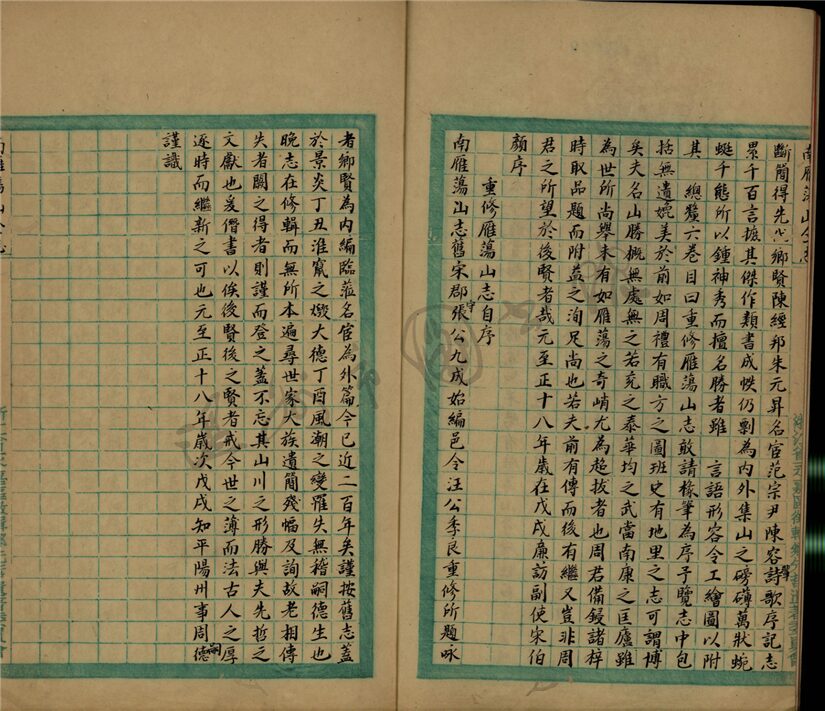 斷簡得先代鄉賢陳經邦朱元昇名宦范宗尹陳容詩歌序記志
累千百言摭其傑作類書成帙仍剽為內外集山之磅礴萬狀蜿
蜒千態所以鍾神秀而擅名勝者雖 言語形容令工繪圖以附
其總釐六卷目曰重修雁蕩山志敢請椽筆為序予覽志中包
括無遺媲美於前如周禮有職方之圖班史有地里之志可謂博
矣夫名山勝概無處無之若兗之泰華均之武當南康之匡廬雖
為世所尚舉未有如雁蕩之奇峭尤為超拔者也周君備鋟諸梓
時取品題而附益之洵足尚也若夫前有傳而後有繼又豈非周
君之所望於後賢者哉元至正十八年歲在戊戌廉訪副使宋伯
顏序
重修雁蕩山志自序
南雁蕩山志舊宋郡守張公九成始編邑令汪公季良重修所題咏
者鄉賢為內編臨蒞名宦為外篇今已近二百年矣謹按舊志蓋
於景炎丁丑淮寇之燬大德丁酉風潮之變罹失無稽嗣德生也
晚志在修輯而無所本遍尋世家大族遺簡殘幅及詢故老相傳
失者闕之得者則謹而登之蓋不忘其山川之形勝與夫先哲之
文獻也爰僭書以俟後賢後之賢者戒今世之薄而法古人之厚
逐時而繼新之可也元至正十八年歲次戊戌知平陽州事周嗣德
謹識